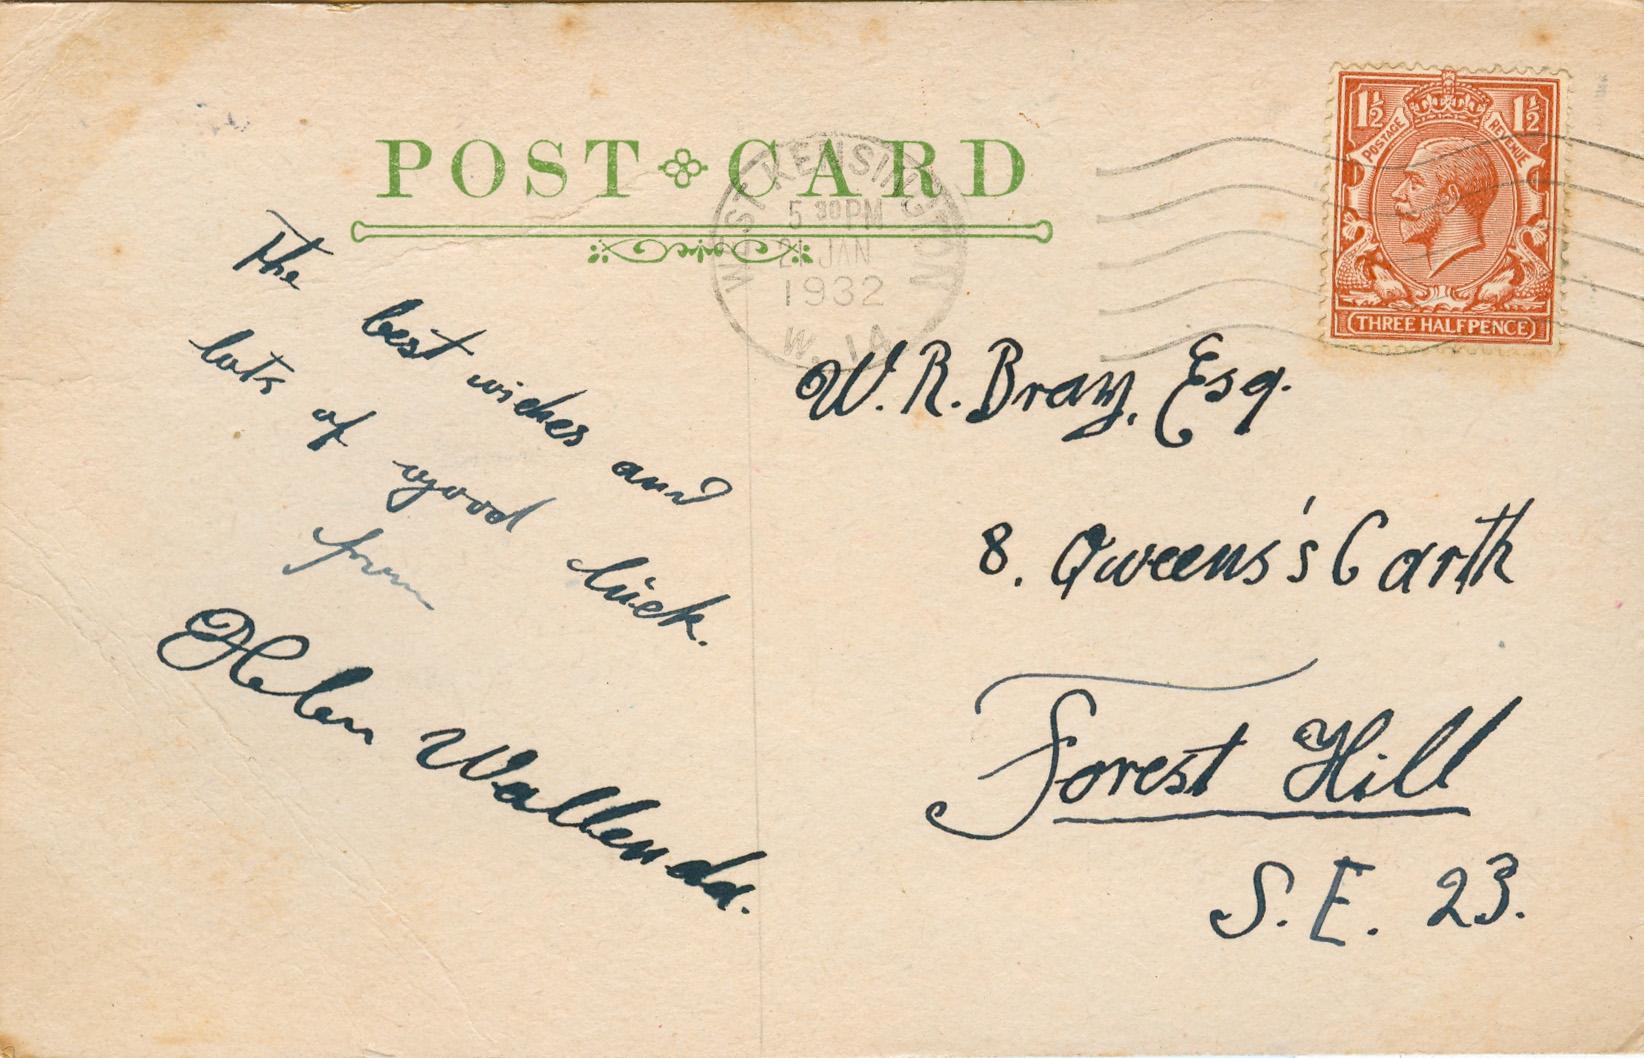 POST CARD
WEST KENSINGTON
5 30 PM
21 JAN
1932
W. 14
1½ 1½
POSTAGE REVENUE
THREE HALFPENCE
The best wishes and
lots of good luck.
from
Helen Wallenda.
W. R. Bray, Esq.
8. Queens's Garth
Forest Hill
S. E. 23.